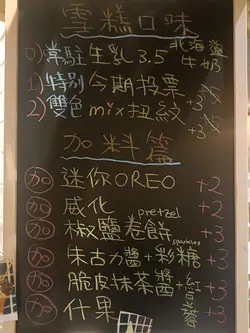 雪糕口味
0) 常駐 生乳 3.5 北海道牛奶
1) 特別 今期投票 +3
2) 雙色 mix 扭紋 +3
加料篇
加 迷你OREO +2
加 威化 +2
加 椒鹽卷餅 pretzel +3
加 朱古力醬+彩糖 sparkles +3
加 脆皮抹茶醬+紅豆蓉 +3
加 什果 +3